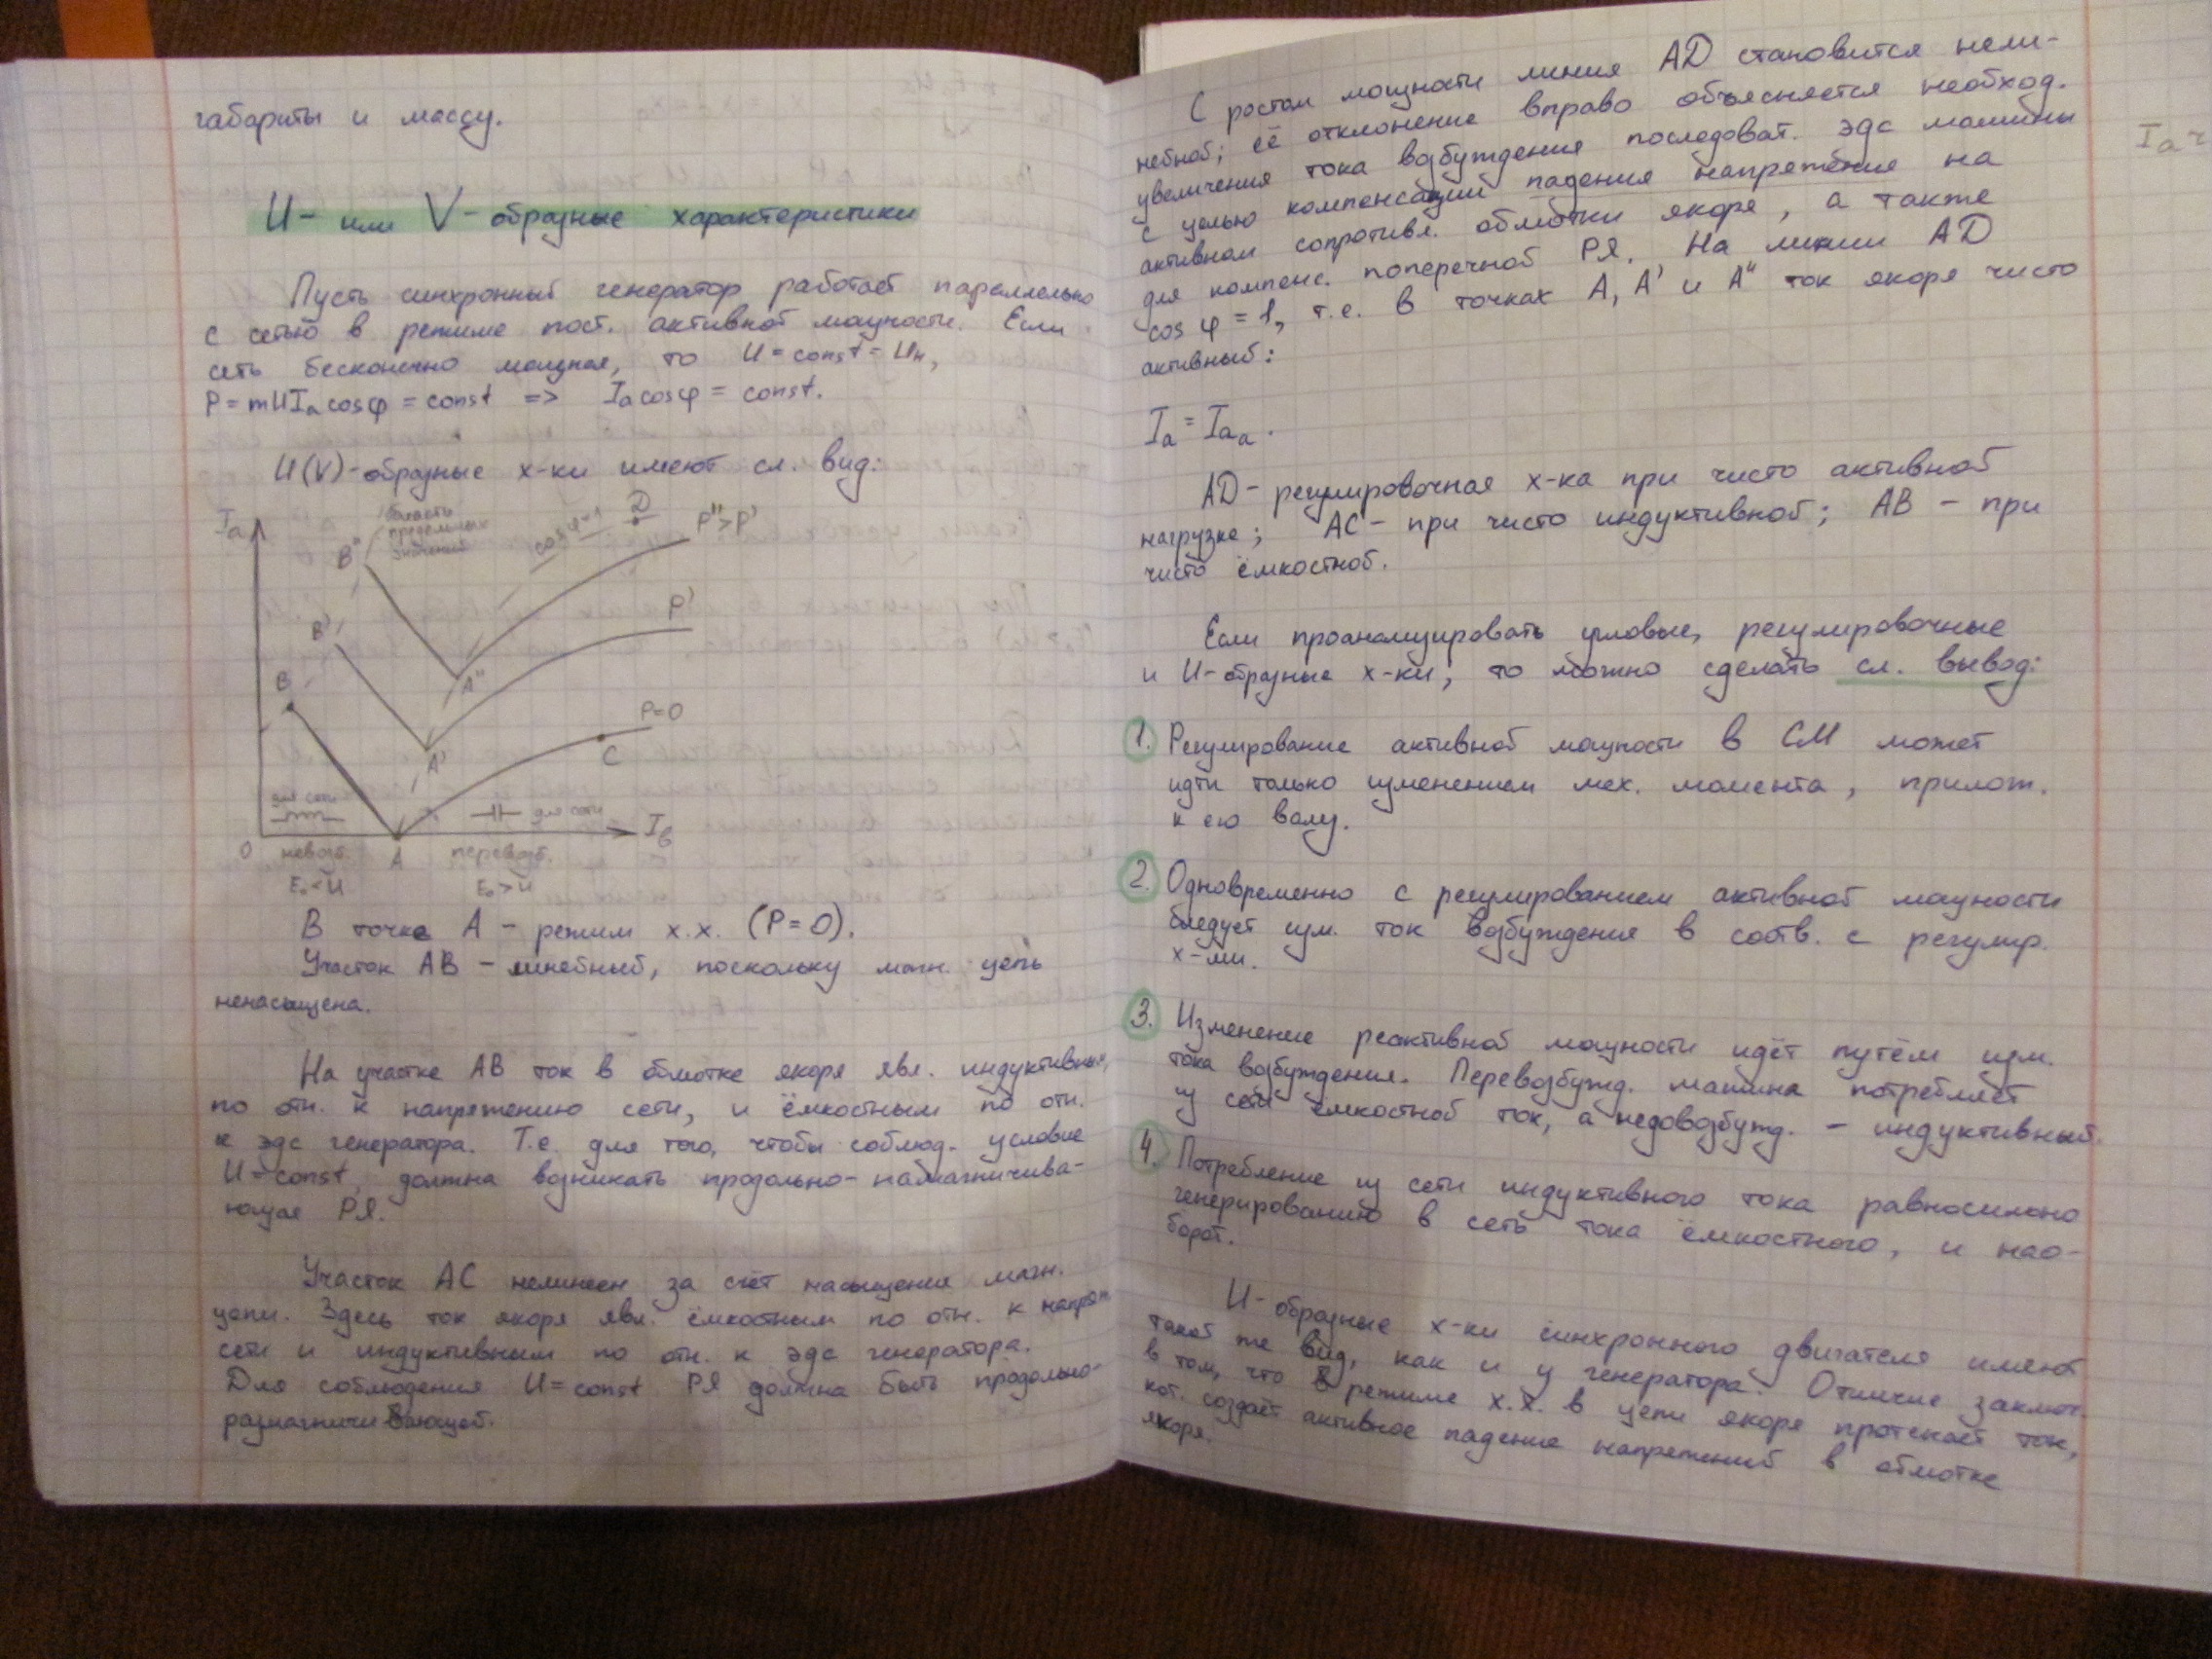 габариты и массу.
U- или V-образные характеристики
Пусть синхронный генератор работает параллельно
с сетью в режиме пост. активной мощности. Если
сеть бесконечно мощная, то U = const = Uн,
P = mUIa cosφ = const => Ia cosφ = const.
U(V)-образные х-ки имеют сл. вид:
Ia
область
предельных
значений
B''
cosφ=1
D
P''>P'
B'
P'
A''
B
A'
P=0
C
для сети
для сети
Iв
0
недовозб.
A
перевозб.
E₀<U
E₀>U
В точке А - режим х.х. (P=0).
Участок АВ - линейный, поскольку магн. цепь
ненасыщена.
На участке АВ ток в обмотке якоря явл. индуктивным
по отн. к напряжению сети, и ёмкостным по отн.
к эдс генератора. Т.е. для того, чтобы соблюд. условие
U = const, должна возникать продольно-намагничива-
ющая РЯ.
Участок АС нелинеен за счёт насыщения магн.
цепи. Здесь ток якоря явл. ёмкостным по отн. к напряж.
сети и индуктивным по отн. к эдс генератора.
Для соблюдения U = const РЯ должна быть продольно-
размагничивающей.
С ростом мощности линия AD становится нели-
нейной; её отклонение вправо объясняется необход.
увеличения тока возбуждения последоват. эдс машины
с целью компенсации падения напряжение на
активном сопротивл. обмотки якоря, а также
для компенс. поперечной РЯ. На линии AD
cos φ = 1, т.е. в точках A, A' и A'' ток якоря чисто
активный:
Ia = Iaa.
AD - регулировочная х-ка при чисто активной
нагрузке; AC - при чисто индуктивной; AB - при
чисто ёмкостной.
Если проанализировать угловые, регулировочные
и U-образные х-ки, то можно сделать сл. вывод:
1. Регулирование активной мощности в СМ может
идти только изменением мех. момента, прилож.
к его валу.
2. Одновременно с регулированием активной мощности
следует изм. ток возбуждения в соотв. с регулир.
х-ми.
3. Изменение реактивной мощности идёт путём изм.
тока возбуждения. Перевозбужд. машина потребляет
из сети ёмкостной ток, а недовозбужд. - индуктивный.
4. Потребление из сети индуктивного тока равносильно
генерированию в сеть тока ёмкостного, и нао-
борот.
U-образные х-ки синхронного двигателя имеют
такой же вид, как и у генератора. Отличие заключ.
в том, что в режиме х.х. в цепи якоря протекает ток,
кот. создаёт активное падение напряжений в обмотке
якоря.